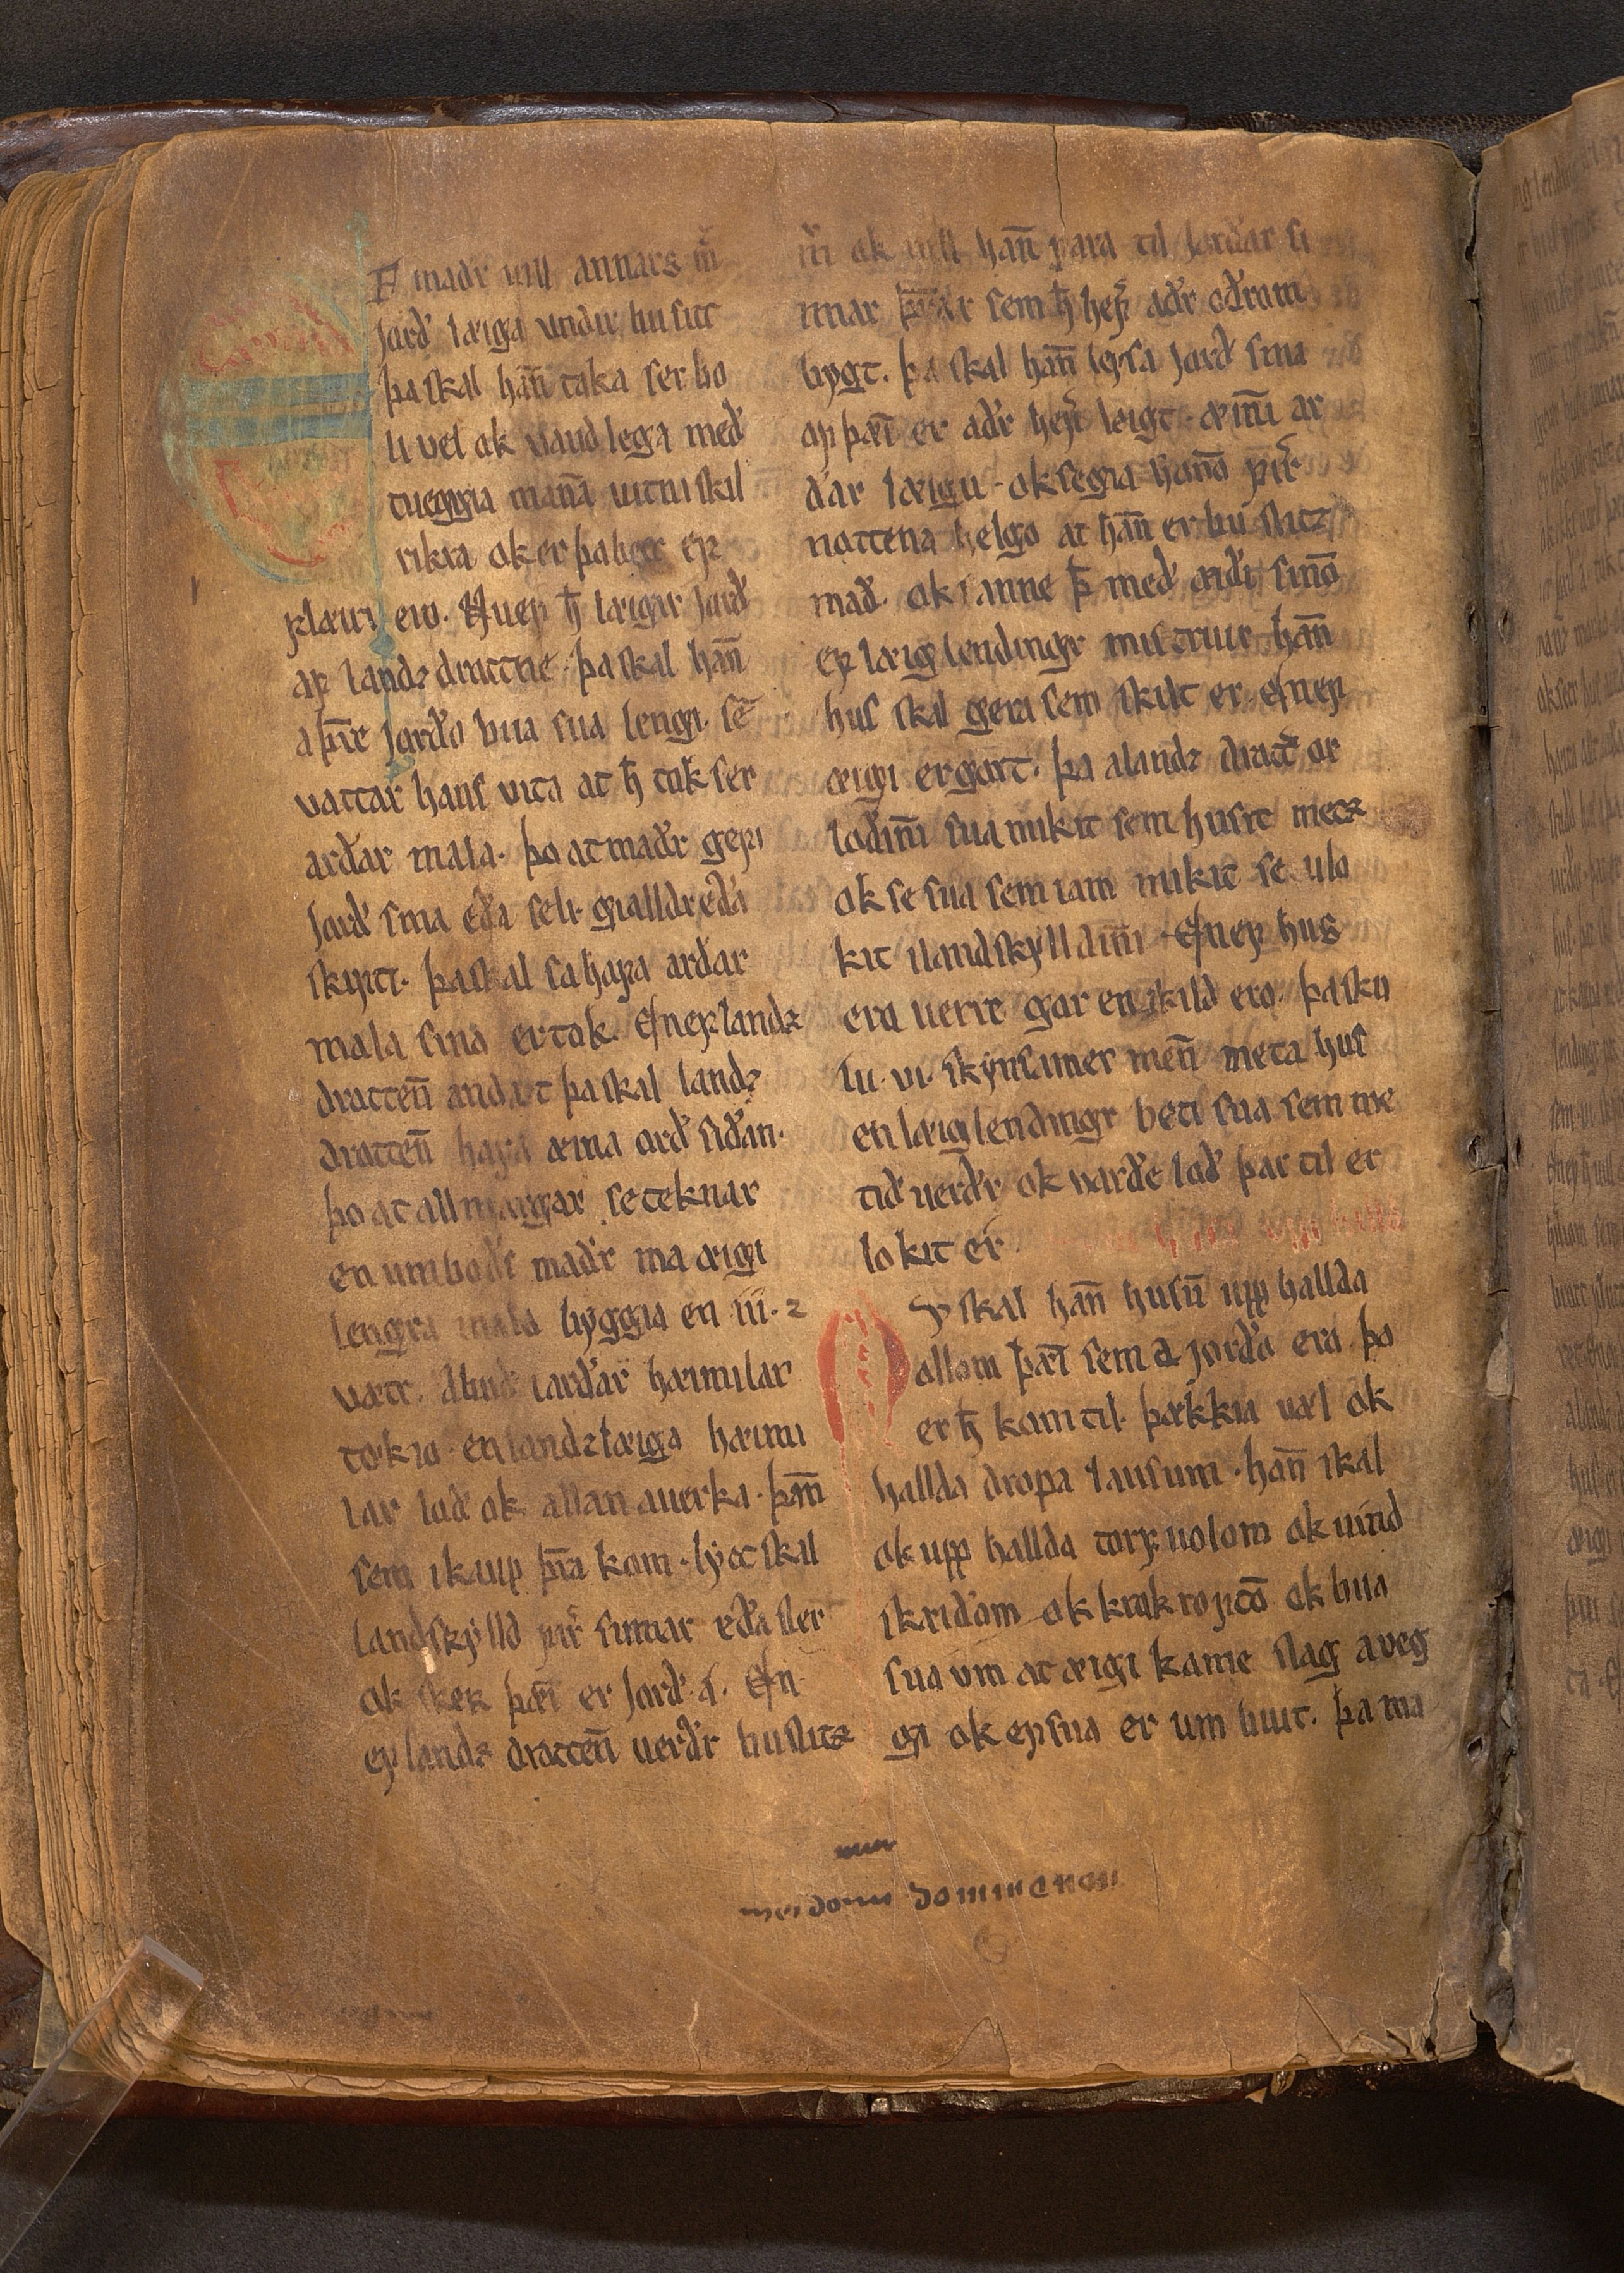 F maðr uill annars m̄
Jorð læiga undir bu sitt
þa skal han̄ taka ser bo
li vel ok vand lega með
tueggia man̄a uitni skil
rikra ok er þa bett eꝼ
ꝼlæiri ero. Nu eꝼ h̄ læigir Jorð
aꝼ landz drottne. þa skal han̄
a þr̄e Jorðo bua sua lengi. sē
vattar hans vita at h̄ tok ser
arðar mala. þo at maðr geꝼi
Jorð sina eða seli. gialldi eða
skipti. þa skal sa haꝼa arðar
mala sina er tok. En eꝼ landz
drotten̄ andazt þa skal landz
drotten̄ haꝼa æina orð siðan.
þo at all margar se teknar
en umboðs maðr ma æigi
lengra mala byggia en .iii. z
vætr. Abuð iarðar hæimilar
tokio. en landz læiga hæimi
lar loð ok allan auerka. þan̄
sem i kaup þr̄a kom. lyct skal
landskylld ꝼir̄ sumar eða ster
ok skek þæī er Jorð a. En
eꝼ landz drotten̄ uerðr buslitz
m̄ ok uill han̄ ꝼara til Jorðar si
nnar þr̄ar sem h̄ heꝼir aðr oðrum
bygt. þa skal han̄ leysa Jorð sina
aꝼ þæī er aðr heꝼir leigt. æin̄i ar
ðar læigu. ok segia honō ꝼir̄
nottena helgo at han̄ er bu slitz
mað. ok sanne þ̄ með æiði sinō
eꝼ læiglendingr mistruir han̄
hus skal gera sem skilt er. En eꝼ
æigi er gort. þa a landz drott̄ or
loðin̄i sua mikit sem husit metz
ok se sua sem iam mikit se ulo
kit i landskylldin̄i. En eꝼ hus
ero uerre gor en skild ero. þa sku
lu .vi. skynsamer men̄ meta hus
en læiglendingr beti sua sem me
tið uerðr ok varðe loð þar til er
lokit er.
Vp skal han̄ husū upp hallda
ollom þæī sem a jorðo ero. þo
er h̄ kom til. þækkia uæl ok
hallda dropa lausum. han̄ skal
ok upp hallda torꝼuolom ok uind
skæiðom ok krokroꝼtō ok bua
sua vm at æigi kome slag a veg
gi ok eꝼ sua er um buit. þa ma